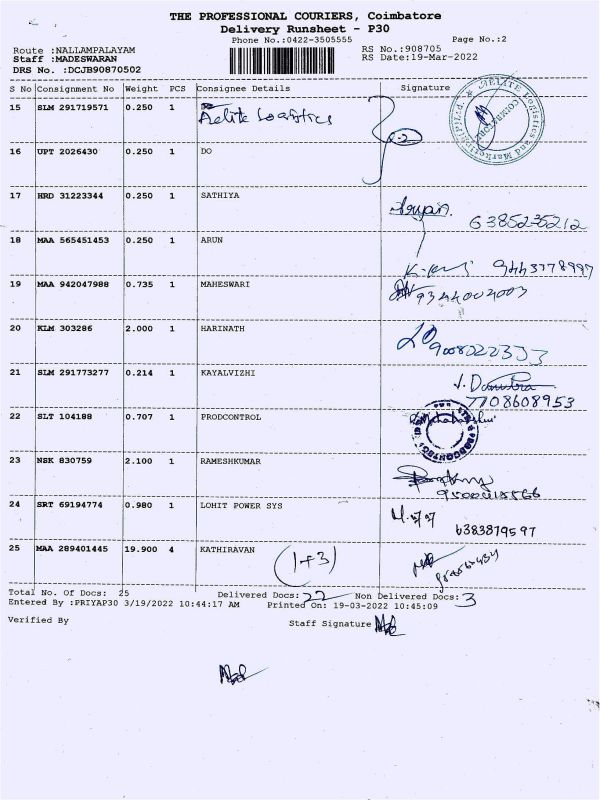 THE PROFESSIONAL COURIERS, Coimbatore
Delivery Runsheet - P30
Phone No.:0422-3505555 Page No.:2
Route :NALLAMPALAYAM RS No.:908705
Staff :MADESWARAN RS Date:19-Mar-2022
DRS No. :DCJB90870502
S No Consignment No Weight PCS Consignee Details Signature
15 SLM 291719571 0.250 1 Aelite Logistics
16 UPT 2026430 0.250 1 DO
17 HRD 31223344 0.250 1 SATHIYA
6385235212
18 MAA 565451453 0.250 1 ARUN
9443778997
19 MAA 942047988 0.735 1 MAHESWARI
9344002003
20 KLM 303286 2.000 1 HARINATH
9008022333
21 SLM 291773277 0.214 1 KAYALVIZHI
7708608953
22 SLT 104188 0.707 1 PRODCONTROL
23 NSK 830759 2.100 1 RAMESHKUMAR
24 SRT 69194774 0.980 1 LOHIT POWER SYS
6383879597
25 MAA 289401445 19.900 4 KATHIRAVAN (1+3)
Total No. Of Docs: 25 Delivered Docs: 22 Non Delivered Docs: 3
Entered By :PRIYAP30 3/19/2022 10:44:17 AM Printed On: 19-03-2022 10:45:09
Verified By Staff Signature